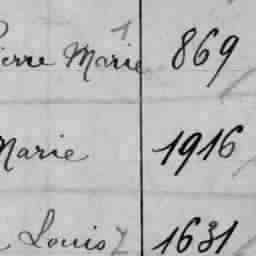 Pierre Marie 869
Marie 1916
Louis 1631